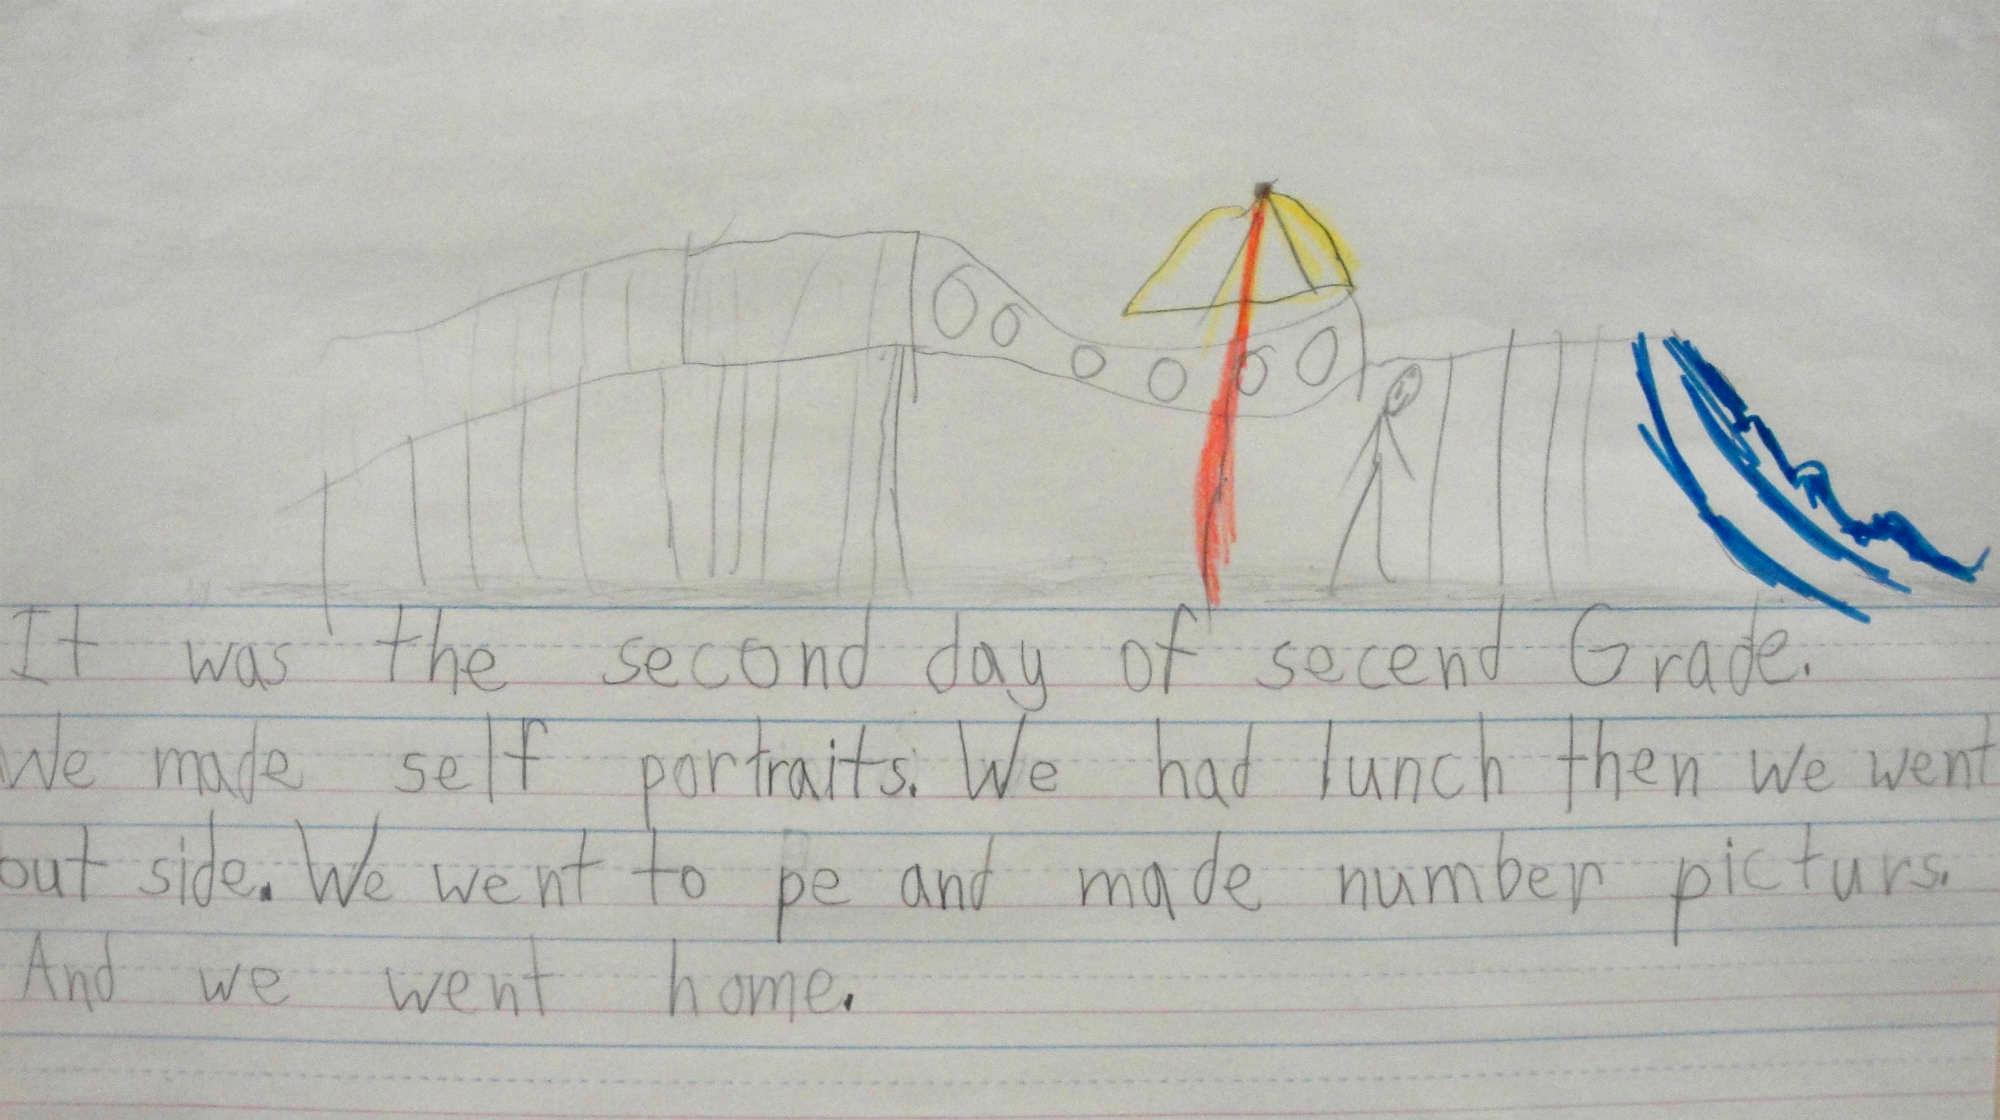 It was the second day of secend Grade.
We made self portraits. We had lunch then we went
out side. We went to pe and made number picturs.
And we went home.